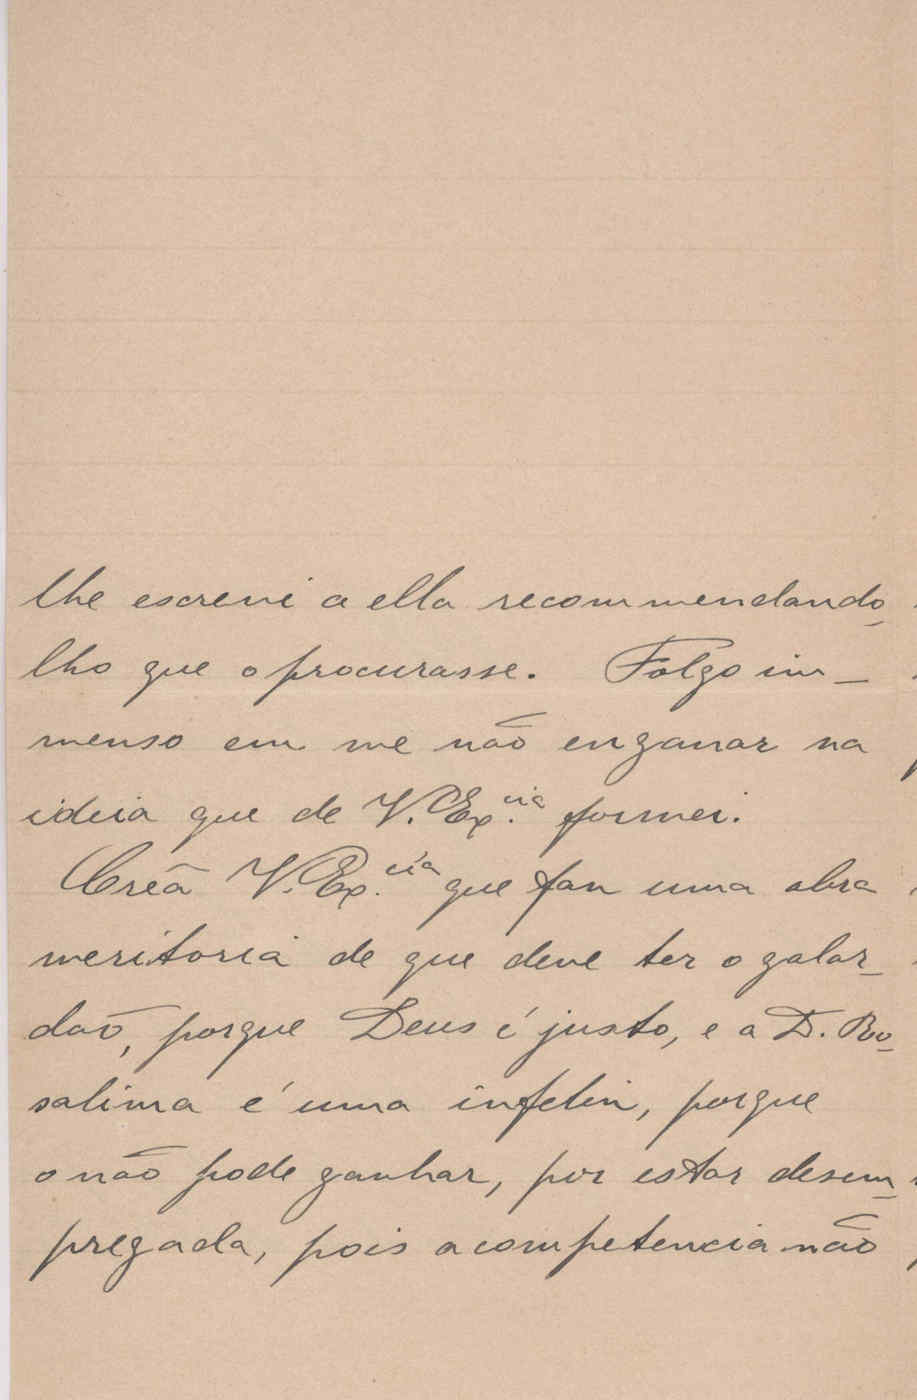 lhe escrevi a ella recommendando-
lho que o procurasse. Folgo im-
menso em me não enganar na
ideia que de V. Ex.cia formei.
Creâ V. Ex.cia que faz uma obra
meritoria de que deve ter o galar-
daõ, porque Deus é justo, e a D. Ro-
salina é uma infeliz, porque
o não pode ganhar, por estar desem-
pregada, pois a competencia não